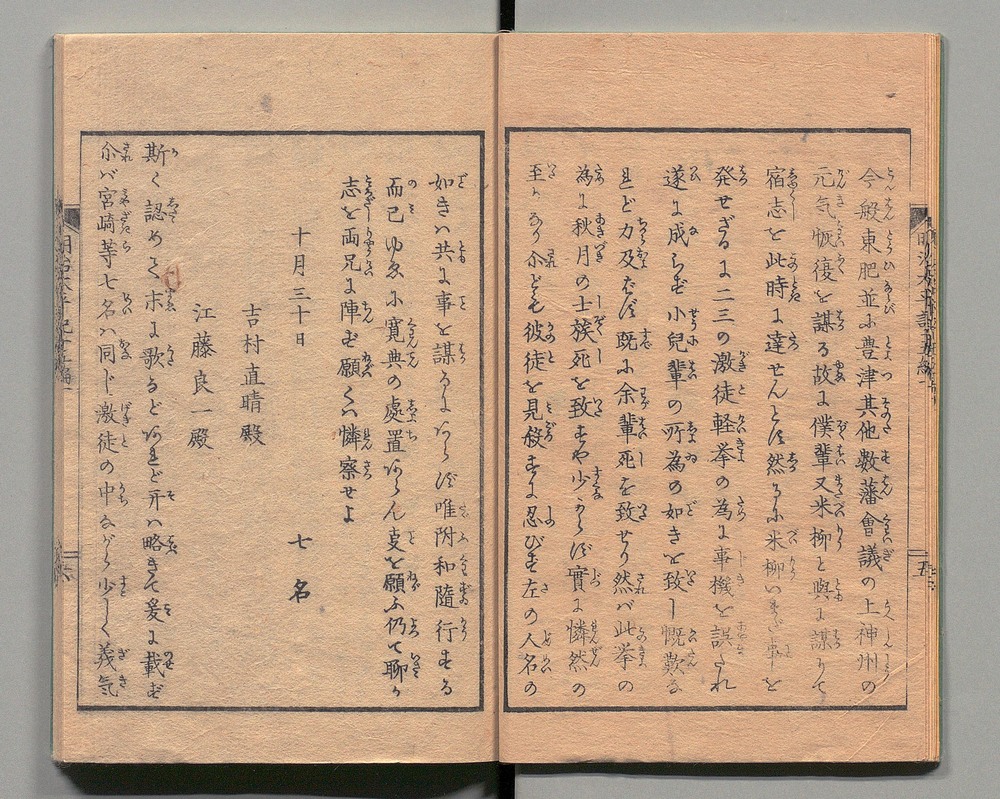 今般東肥並に豊津其他数藩會議の上神州の
元気恢復を謀る故に僕輩又米柳と與に謀りて
宿志を此時に達せんとす然るに米柳いまだ事を
発せざるに二三の激徒軽挙の為に事機を誤られ
遂に成らず小兒輩の所為の如きを致し慨歎る
ど力及ばず既に余輩死を致せり然バ此挙の
為に秋月の士族死を致すや少からず實に憐然の
至りなり介ども彼徒を見殺すに忍びず左の人名の
如きハ共に事を謀るにあらず唯附和隨行する
而已ゆゑに寛典の處置あらん支を願ふ仍て聊か
志を両兄に陣ず願くハ憐察せよ
十月三十日 七名
吉村直晴殿
江藤良一殿
斯く認めて末に歌などあれど开ハ略きて爰に載ず
介バ宮崎等七名ハ同じ激徒の中ながら少しく義気